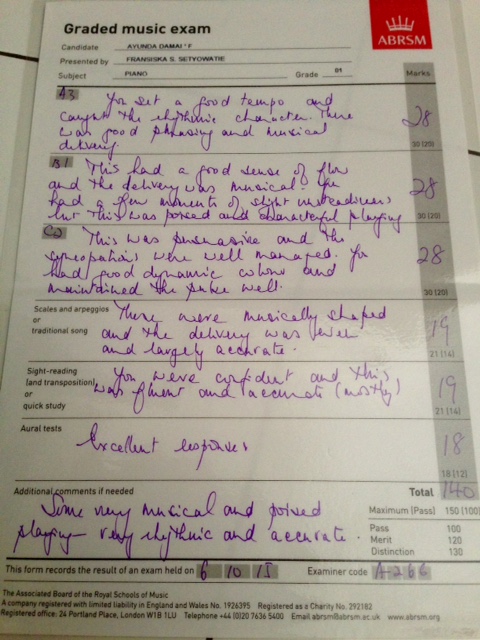 Graded music exam
ABRSM
Candidate AYUNDA DAMAI * F
Presented by FRANSISKA S. SETYOWATIE
Subject PIANO Grade 01
Marks
A3 You set a good tempo and
caught the rhythmic character. There
was good phrasing and musical
delivery.
28
30 (20)
B1 This had a good sense of flow
and the delivery was musical. You
had a few moments of slight unsteadiness
but this was poised and characterful playing
28
30 (20)
This was persuasive and the
syncopations were well managed. You
had good dynamic colour and
maintained the pulse well.
28
30 (20)
Scales and arpeggios
or
traditional song
These were musically shaped
and the delivery was even
and largely accurate.
19
21 (14)
Sight-reading
(and transposition)
or
quick study
You were confident and this
was fluent and accurate (mostly)
19
21 (14)
Aural tests
Excellent responses
18
18 (12)
Additional comments if needed
Some very musical and poised
playing - very rhythmic and accurate.
Total 140
Maximum (Pass) 150 (100)
Pass 100
Merit 120
Distinction 130
This form records the result of an exam held on 6 10 15 Examiner code A266
The Associated Board of the Royal Schools of Music
A company registered with limited liability in England and Wales No. 1926395 Registered as a Charity No. 292182
Registered office: 24 Portland Place, London W1B 1LU Telephone +44 (0)20 7636 5400 Email abrsm@abrsm.ac.uk www.abrsm.org